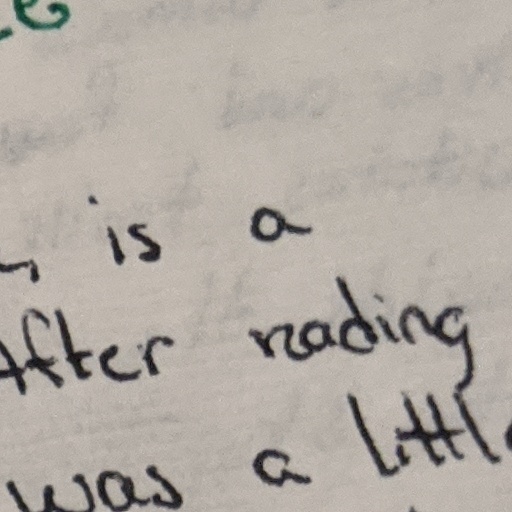 is a
After rading
was a little